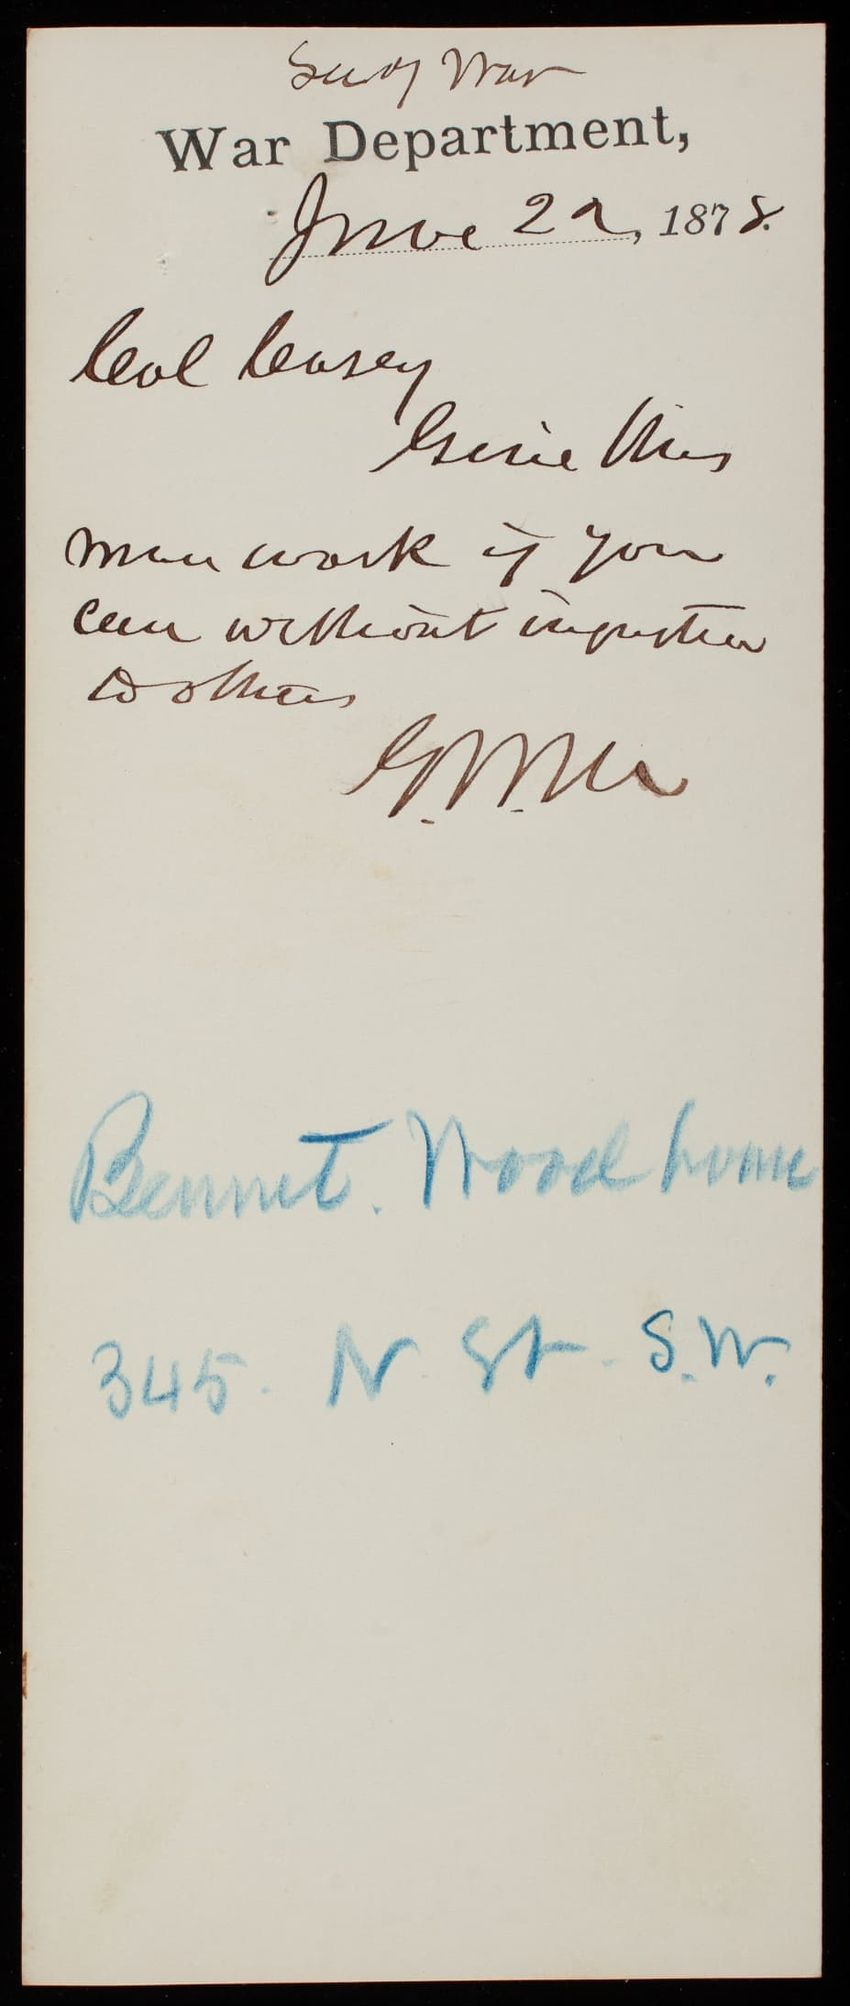 Sec of War
War Department,
June 22, 1878.
Col Casey
Give this
man work if you
can without injustice
to others
G.W. Mc
Bennet. Woodhouse
345. N St. S.W.